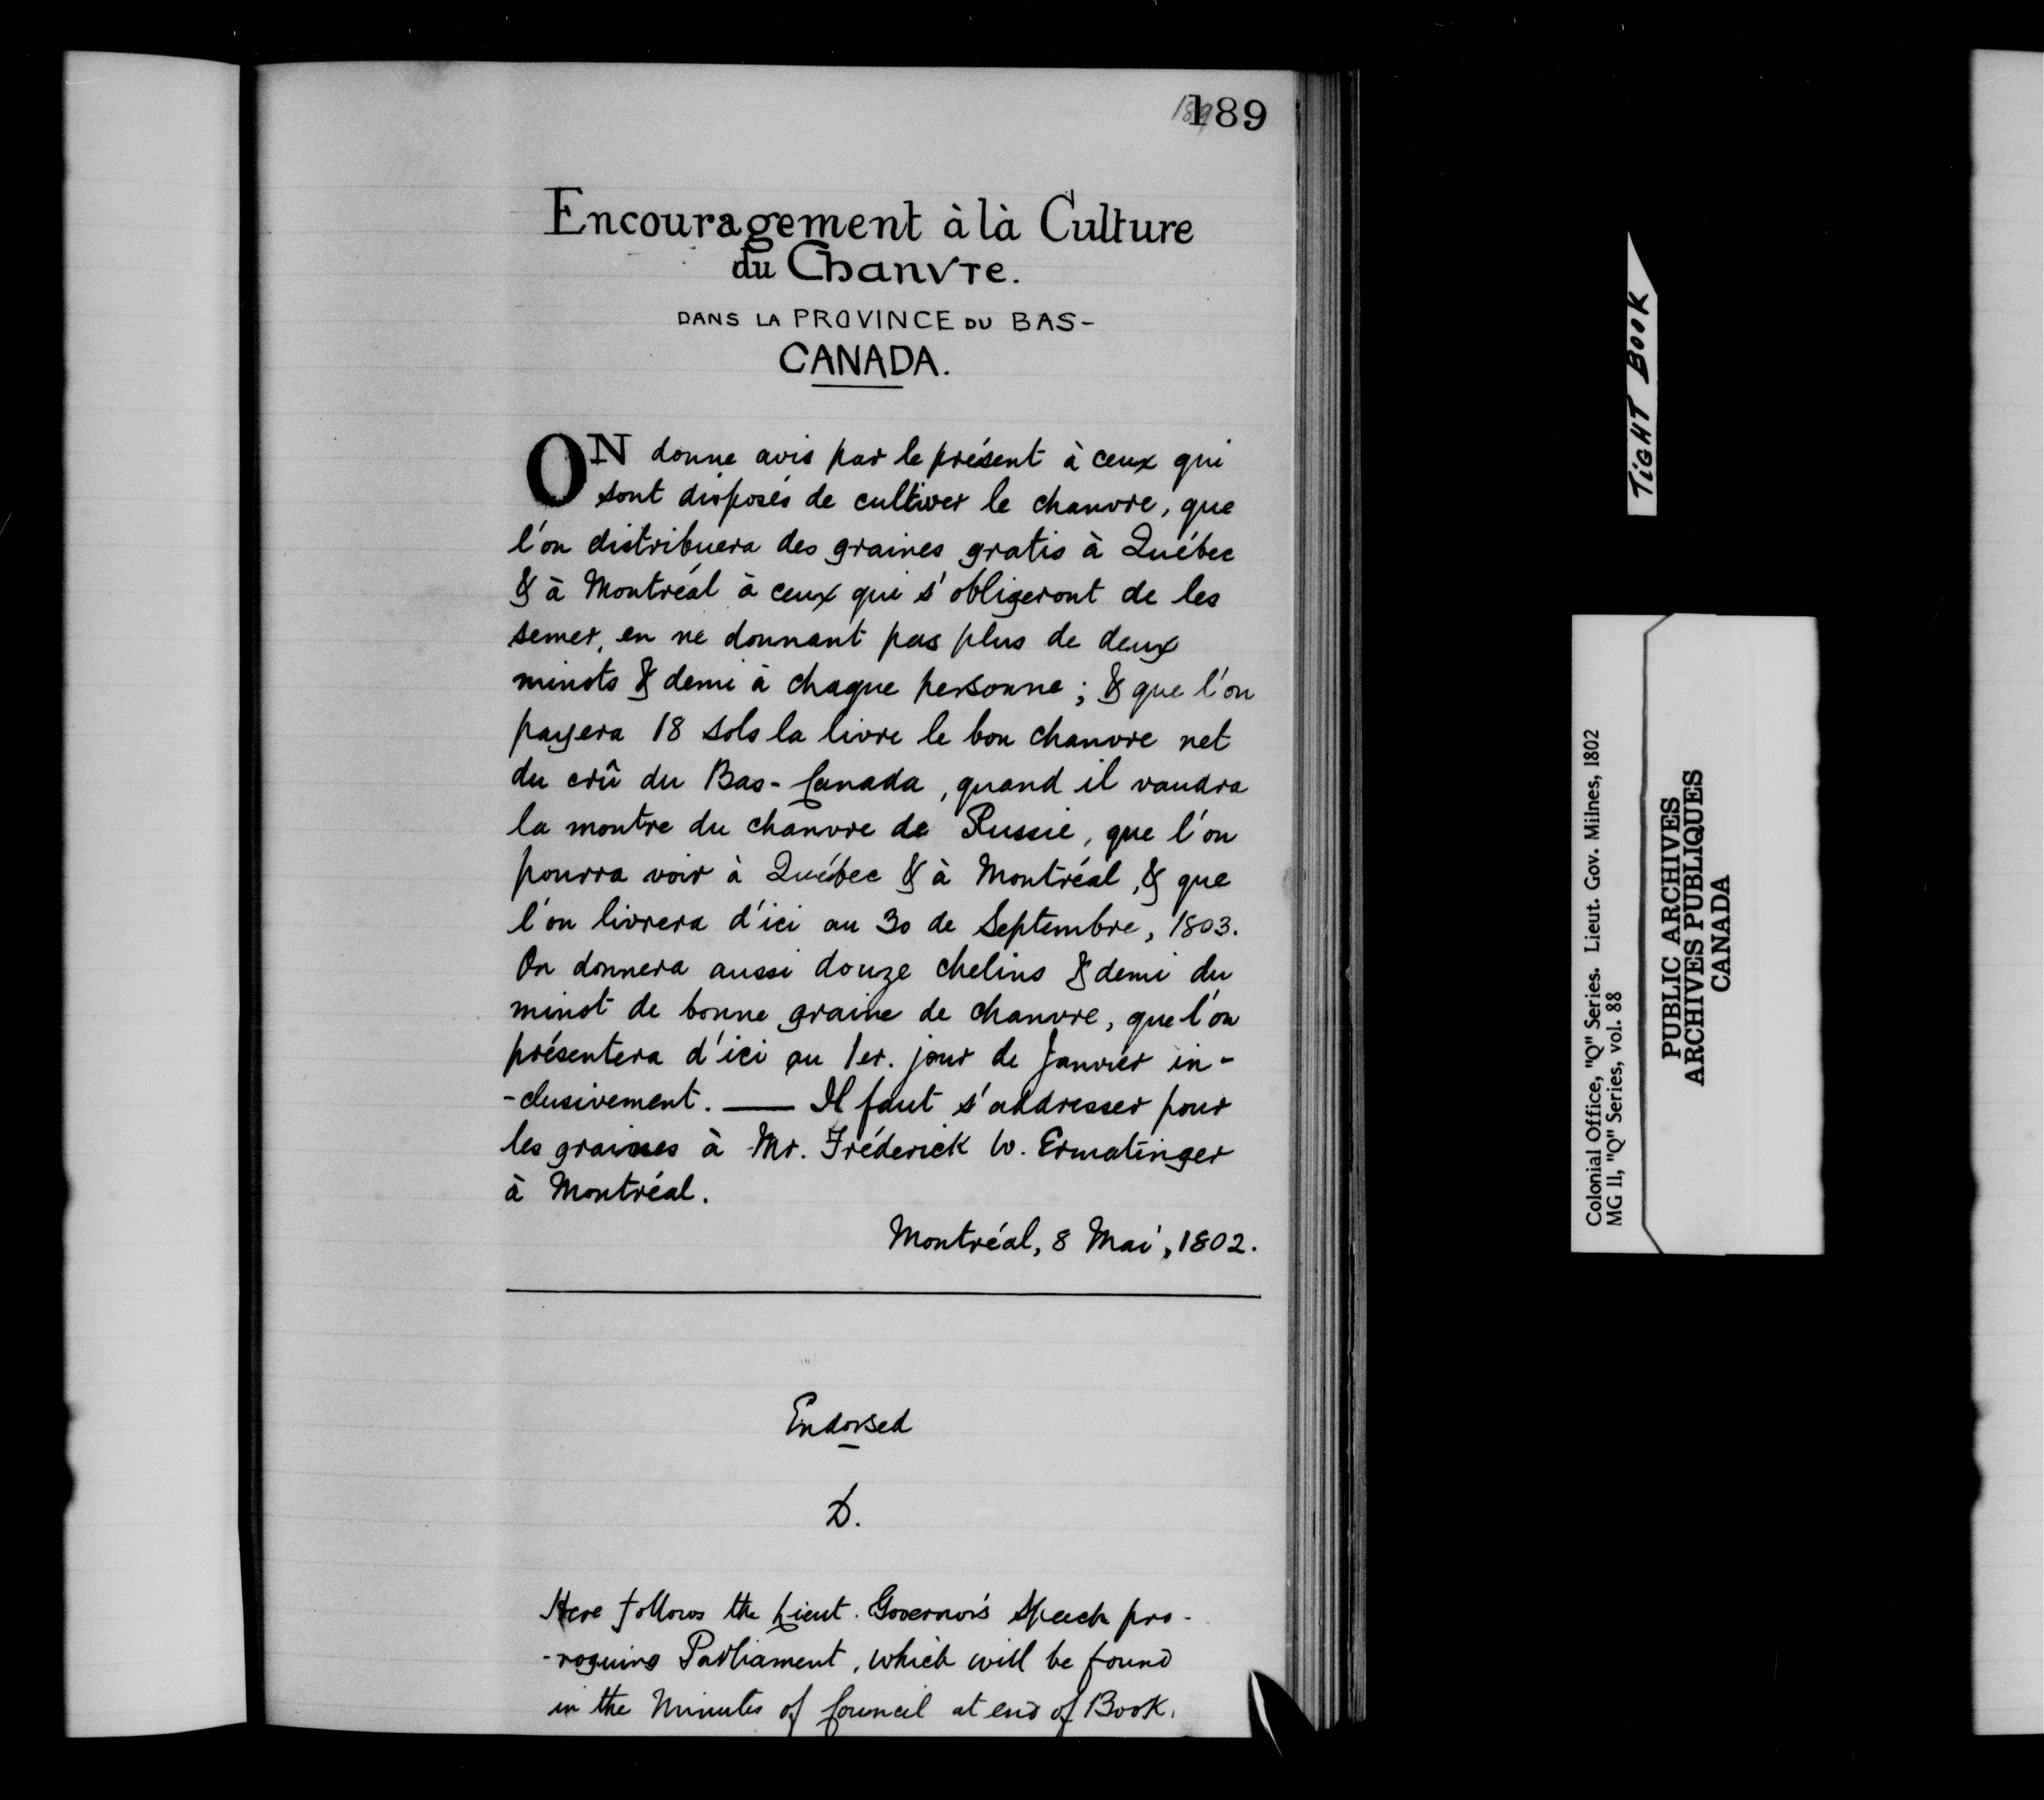 189
189
Encouragement à là Culture
du Chanvre.
DANS LA PROVINCE DU BAS-
CANADA.
ON donne avis par le présent à ceux qui
sont disposés de cultiver le chanvre, que
l'on distribuera des graines gratis à Québec
& à Montréal à ceux qui s'obligeront de les
semer, en ne donnant pas plus de deux
minots & demi à chaque personne; & que l'on
payera 18 sols la livre le bon chanvre net
du crû du Bas-Canada, quand il vaudra
la montre du chanvre de Russie, que l'on
pourra voir à Québec & à Montréal, & que
l'on livrera d'ici au 30 de Septembre, 1803.
On donnera aussi douze chelins & demi du
minot de bonne graine de chanvre, que l'on
présentera d'ici au 1er. jour de Janvier in-
-clusivement. — Il faut s'addresser pour
les graines à Mr. Fréderick W. Ermatinger
à Montréal.
Montréal, 8 Mai, 1802.
Endorsed
D.
Here follows the Lieut. Governor's Speech pro-
-roguing Parliament, which will be found
in the Minutes of Council at end of Book.
TIGHT BOOK
Colonial Office, "Q" Series. Lieut. Gov. Milnes, 1802
MG 11, "Q" Series, vol. 88
PUBLIC ARCHIVES
ARCHIVES PUBLIQUES
CANADA